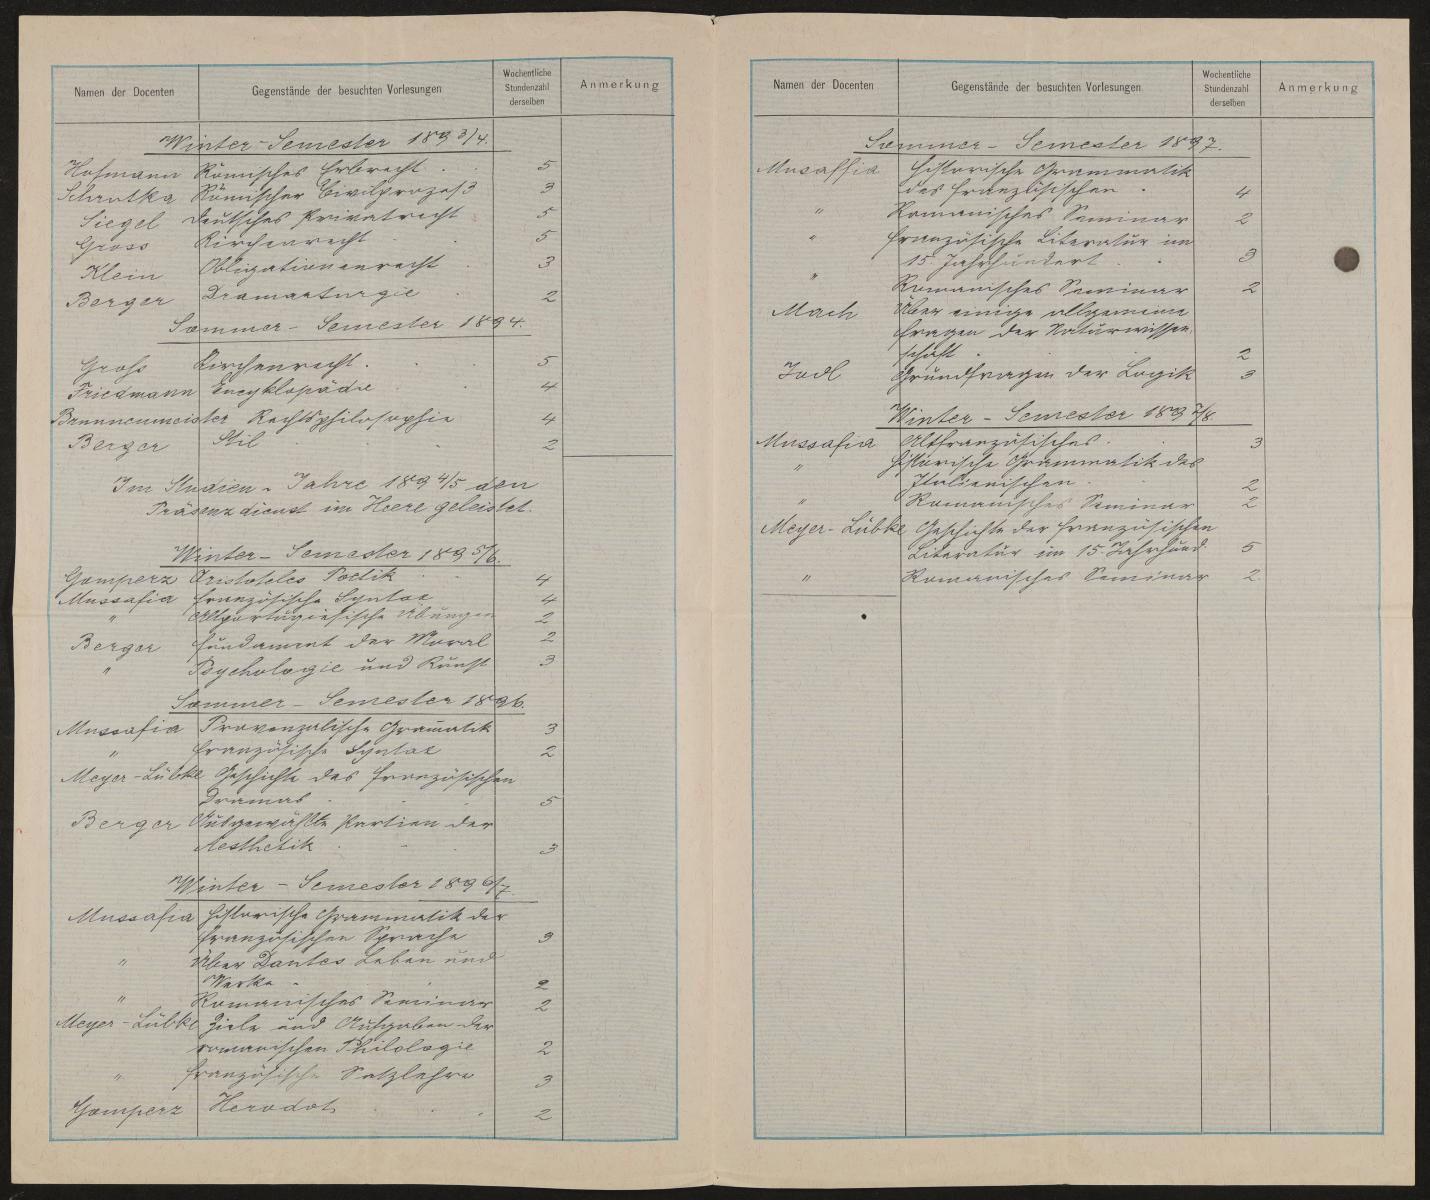 Namen der Docenten Gegenstände der besuchten Vorlesungen Wochentliche Stundenzahl derselben Anmerkung
Winter-Semester 1893/4.
Hofmann Römisches Erbrecht . . 5
Schrutka Römischer Civilprozeß 3
Siegel Deutsches Privatrecht 5
Gross Kirchenrecht . . 5
Klein Obligationenrecht . 3
Berger Dramaturgie . 2
Sommer-Semester 1894.
Groß Kirchenrecht . . . 5
Friedmann Encyklopädie . . 4
Brunnenmeister Rechtsphilosophie 4
Berger Stil . . . 2
Im Studien-Jahre 1894/5 den
Präsenzdienst im Heere geleistet.
Winter-Semester 1895/6.
Gomperz Aristoteles Poetik . . 4
Mussafia Französische Syntax 4
" Altportugiesische Übungen 2
Berger Fundament der Moral 2
" Psychologie und Kunst 3
Sommer-Semester 1896.
Mussafia Provenzalische Gramatik 3
" Französische Syntax 2
Meyer-Lübke Geschichte des französischen
Dramas . . . 5
Berger Ausgewählte Partien der
Aesthetik . . . 3
Winter-Semester 1896/7.
Mussafia Historische Grammatik der
französischen Sprache 3
" Über Dantes Leben und
Werke . . 2
" Romanisches Seminar 2
Meyer-Lübke Ziele und Aufgaben der
romanischen Philologie 2
" Französische Satzlehre 3
Gomperz Herodot . . . 2
Namen der Docenten Gegenstände der besuchten Vorlesungen Wochentliche Stundenzahl derselben Anmerkung
Sommer-Semester 1897.
Mussaffia Historische Grammatik
des Französischen . 4
" Romanisches Seminar 2
" Französische Literatur im
15. Jahrhundert . . 3
" Romanisches Seminar 2
Mach Über einige allgemeine
Fragen der Naturwissen-
schaft . . . 2
Jodl Grundfragen der Logik 3
Winter-Semester 1897/8.
Mussafia Altfranzösisches . . 3
" Historische Grammatik des
Italienischen . . 2
" Romanisches Seminar 2
Meyer-Lübke Geschichte der französischen
Literatur im 15. Jahrhund. 5
" Romanisches Seminar 2.